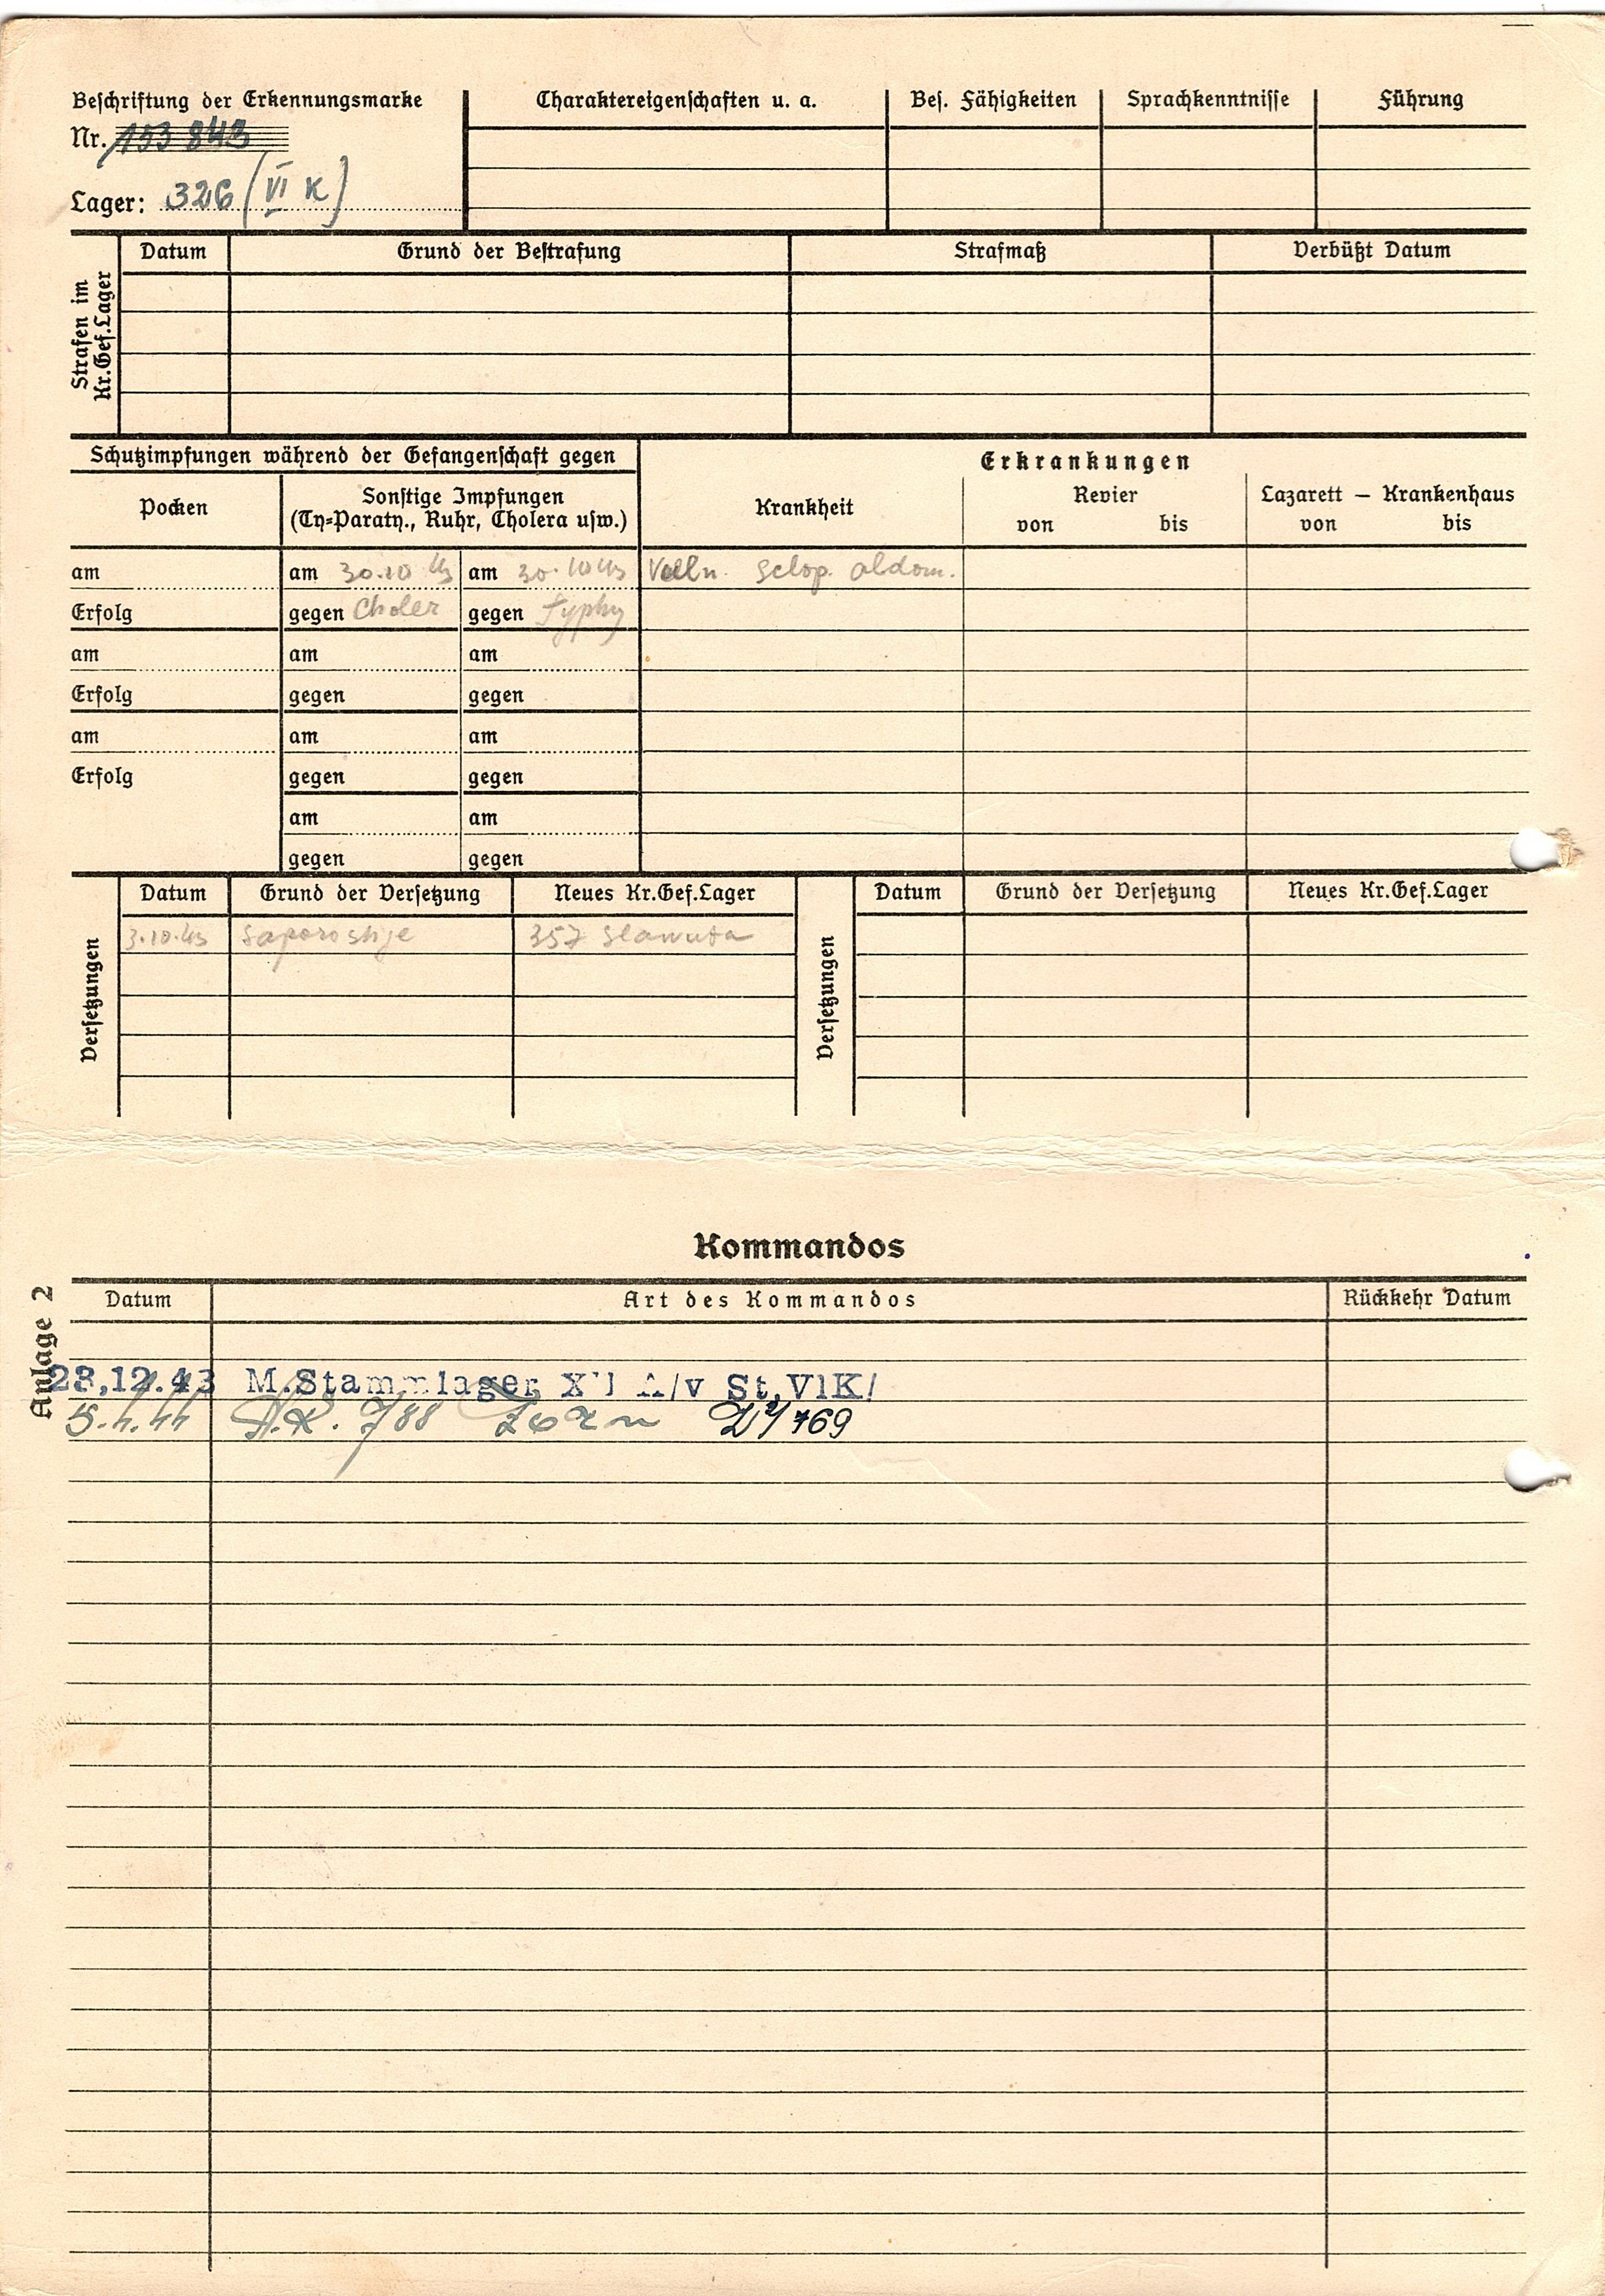 Beschriftung der Erkennungsmarke
Nr. 153 843
Lager: 326 (VI K)
Charaktereigenschaften u. a.
Bes. Fähigkeiten
Sprachkenntnisse
Führung
Strafen im
Kr.Gef.Lager
Datum
Grund der Bestrafung
Strafmaß
Verbüßt Datum
Schutzimpfungen während der Gefangenschaft gegen
Pocken
Sonstige Impfungen
(Ty=Paraty., Ruhr, Cholera usw.)
Erkrankungen
Krankheit
Revier
von bis
Lazarett — Krankenhaus
von bis
am am 30.10 43 am 30.10 43 sclop. abdom.
Erfolg gegen Choler gegen Typhy
am am am
Erfolg gegen gegen
am am am
Erfolg gegen gegen
am am
gegen gegen
Versetzungen
Datum Grund der Versetzung Neues Kr.Gef.Lager
3.10.43 Saporoshje 357 Slawuta
Versetzungen
Datum Grund der Versetzung Neues Kr.Gef.Lager
Kommandos
Anlage 2
Datum Art des Kommandos Rückkehr Datum
23.12.43 M.Stammlager /v St.VlK/
5.1.44 A.K. 788